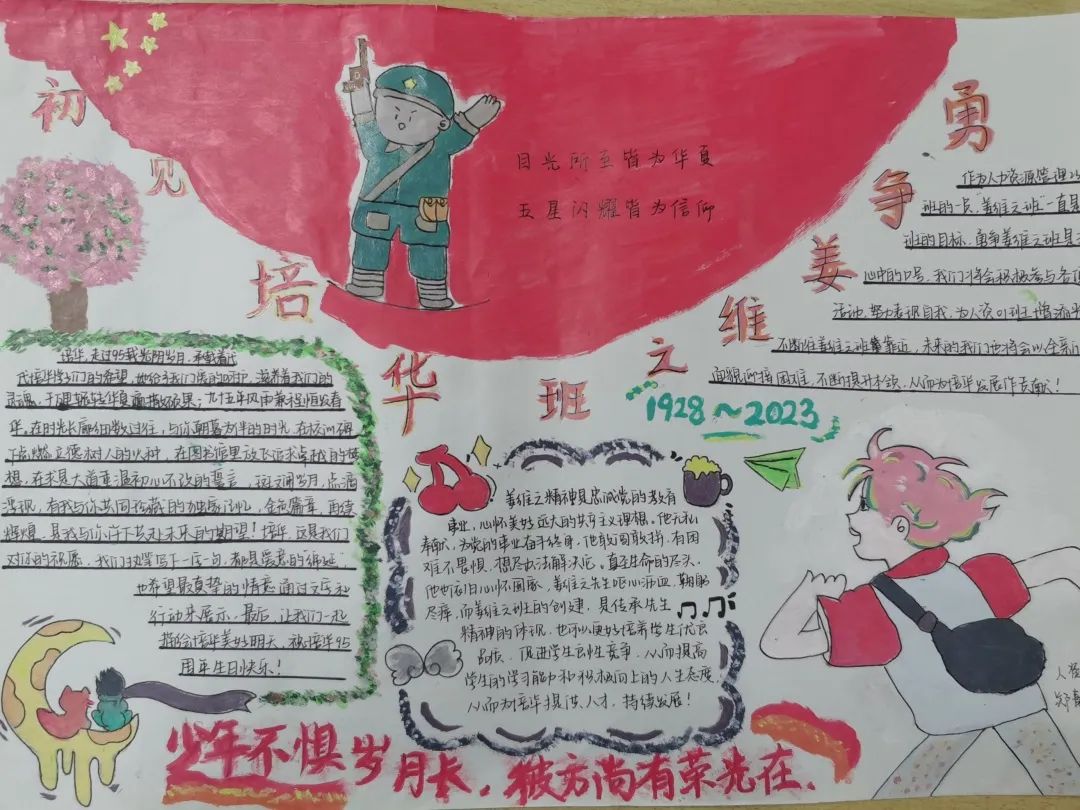 初见培华
勇争姜维之班
目光所至皆为华夏
五星闪耀皆为信仰
1928～2023
作为人力资源管理
班的一员，"姜维之班"一直是
班的目标，勇争姜维之班是
心中的口号，我们将会积极参与各
活动，努力表现自我，为人资01班增添
不断往姜维之班靠近，未来的我们也将会以全新
面貌迎接困难，不断提升本领，从而为培华发展作贡献！
培华，走过95载光阴岁月，承载着
代培华学子们的希望，她给予我们
灵魂
华，在时光长廊细数过往，与你朝暮为伴的时光，在校训
下点燃立德树人的火种，在图书馆里放飞追求卓越的梦
想，在求是大道重温初心不改的誓言，斑斓岁月，点滴
浮现，有我与你共同珍藏的独家记忆，金色篇章，再续
辉煌，是我与你并肩奔赴未来的期望！培华，这是我们
对你的祝愿，我们执笔写下一字一句，都是爱意的绵延
也希望最真挚的情意通过文字和
行动来展示，最后，让我们一起
描绘培华美好明天，祝培华95
周年生日快乐！
姜维之精神是忠诚党的教育
事业，心怀美好远大的共产主义理想。他无私
奉献，为党的事业奋斗终身，他敢闯敢拼，有困
难不畏惧，想尽办法解决它。直至生命的尽头，
他也依旧心怀国家，姜维之先生呕心沥血，鞠躬
尽瘁，而姜维之班的创建，是传承先生
精神的体现，也可以更好培养学生优良
品质，促进学生良性竞争，从而提高
学生的学习能力和积极向上的人生态度，
从而为培华提供人才，持续发展！
少年不惧岁月长，彼方尚有荣光在.